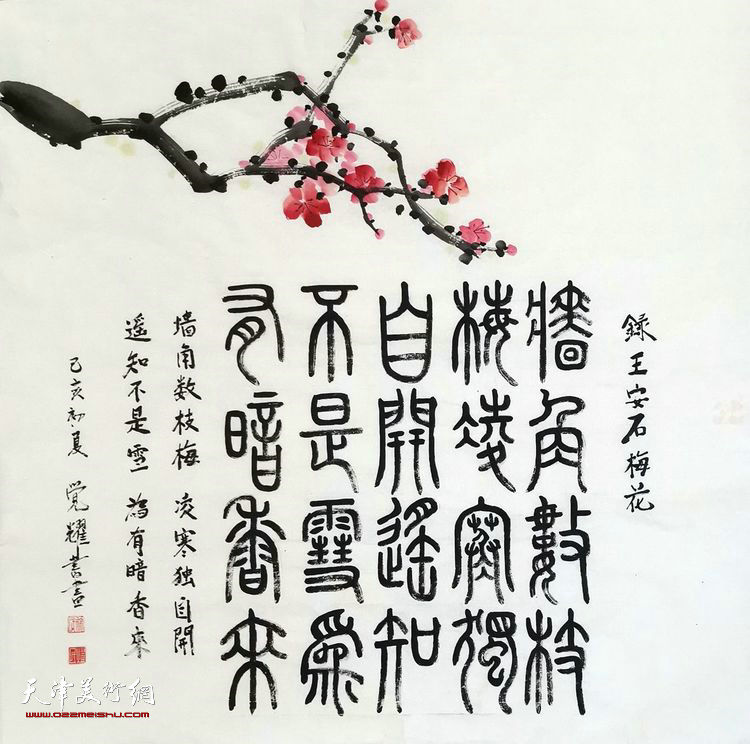 録王安石梅花
牆角數枝
梅凌寒獨
自開遙知
不是雪爲
有暗香來
墙角数枝梅 凌寒独自開
遥知不是雪 為有暗香来
己亥初夏 觉耀書畫
天津美術網
www.022meishu.com